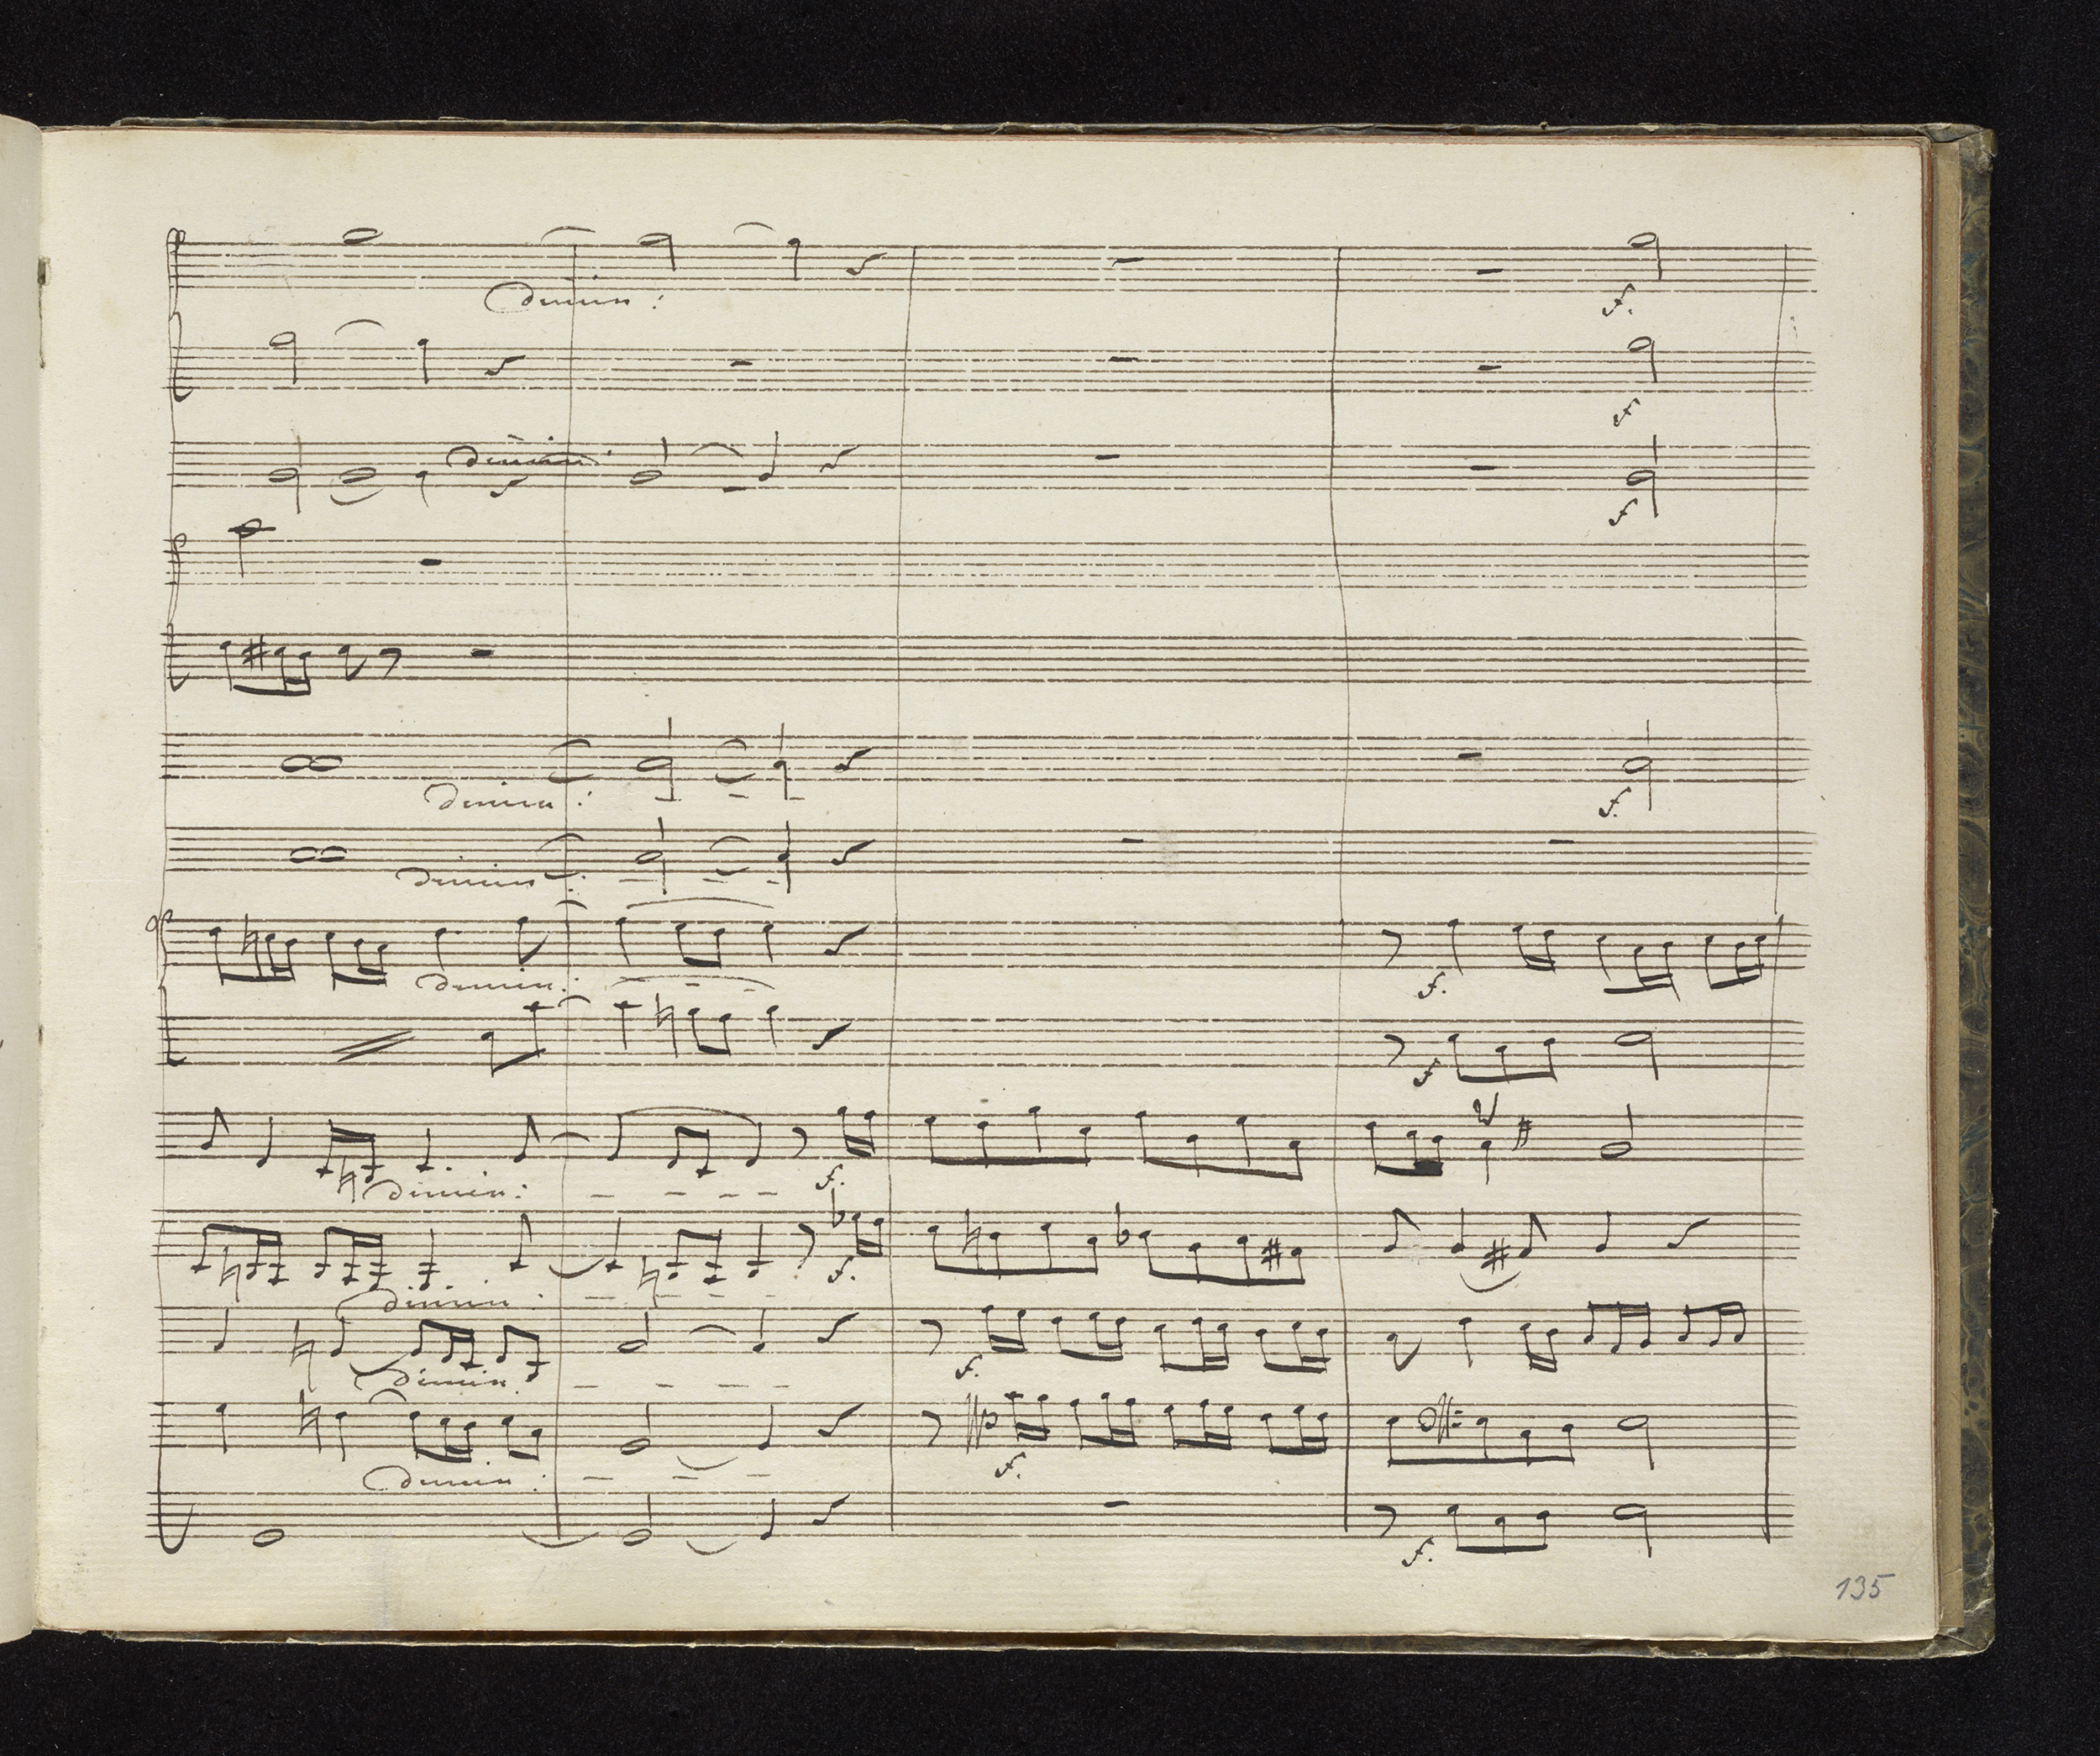 dimin:
f.
f
dimin:
f
dimin:
f.
dimin:
dimin:
f.
f
dimin:
f.
f.
dimin:
dimin:
f.
f.
dimin:
f.
135